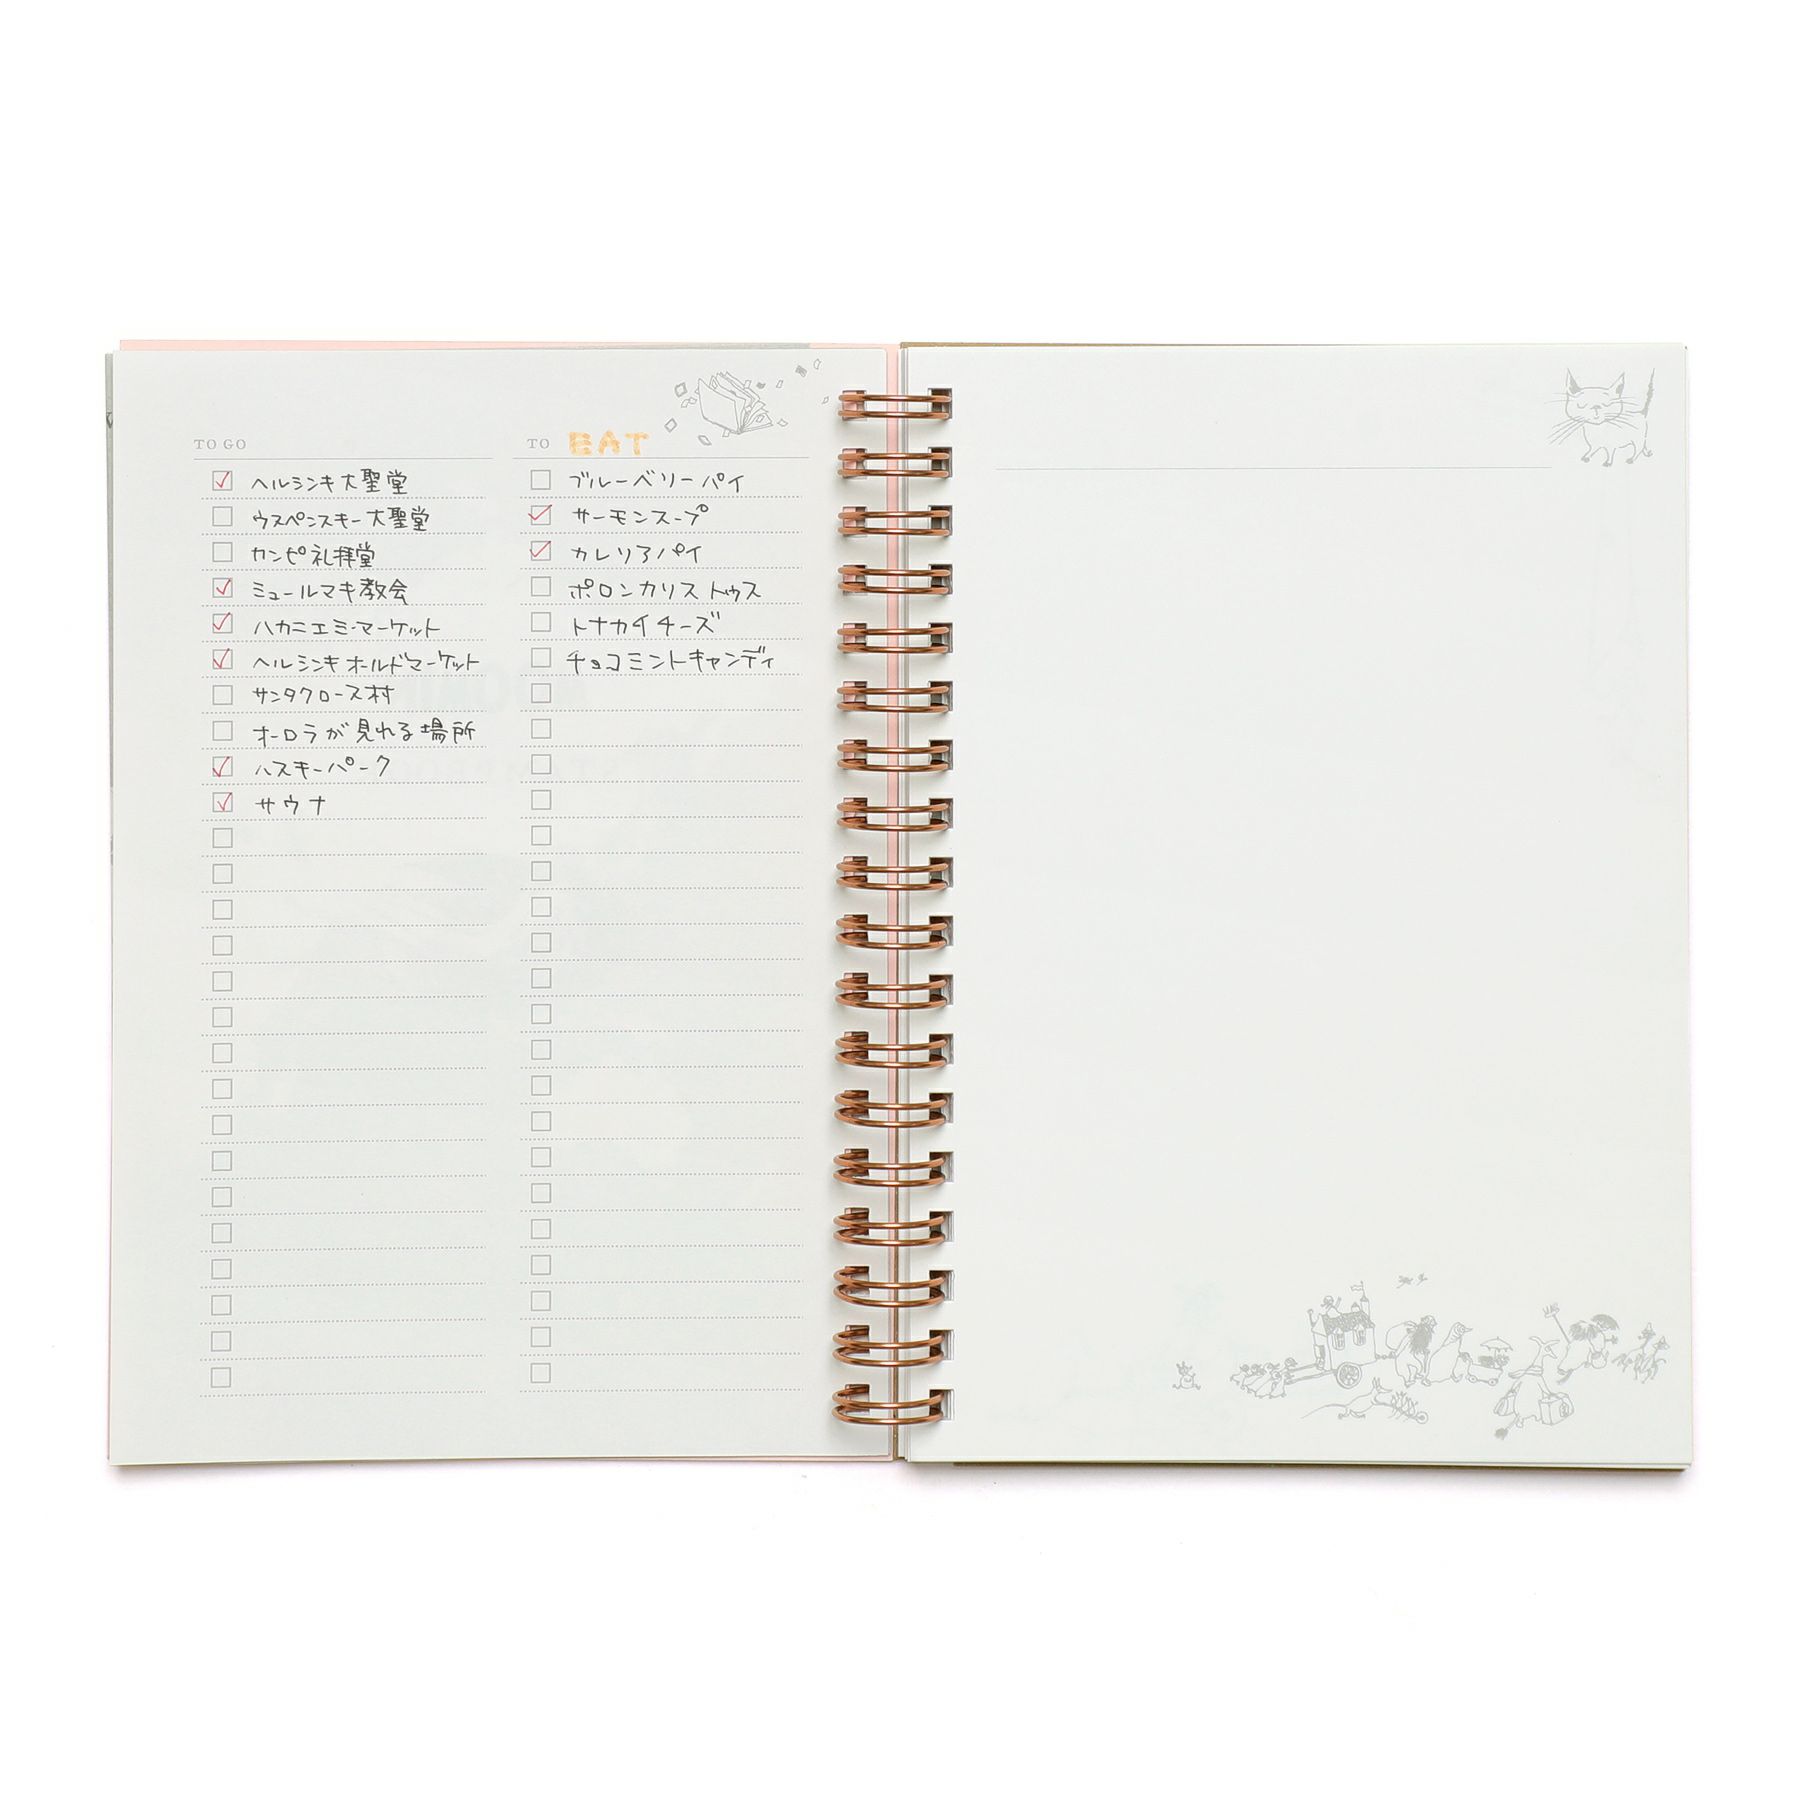 TO GO
ヘルシンキ大聖堂
ウスペンスキー大聖堂
カンピ礼拝堂
ミュールマキ教会
ハカニエミ・マーケット
ヘルシンキオールドマーケット
サンタクロース村
オーロラが見れる場所
ハスキーパーク
サウナ
TO EAT
ブルーベリーパイ
サーモンスープ
カレリアパイ
ポロンカリストゥス
トナカイチーズ
チョコミントキャンディ